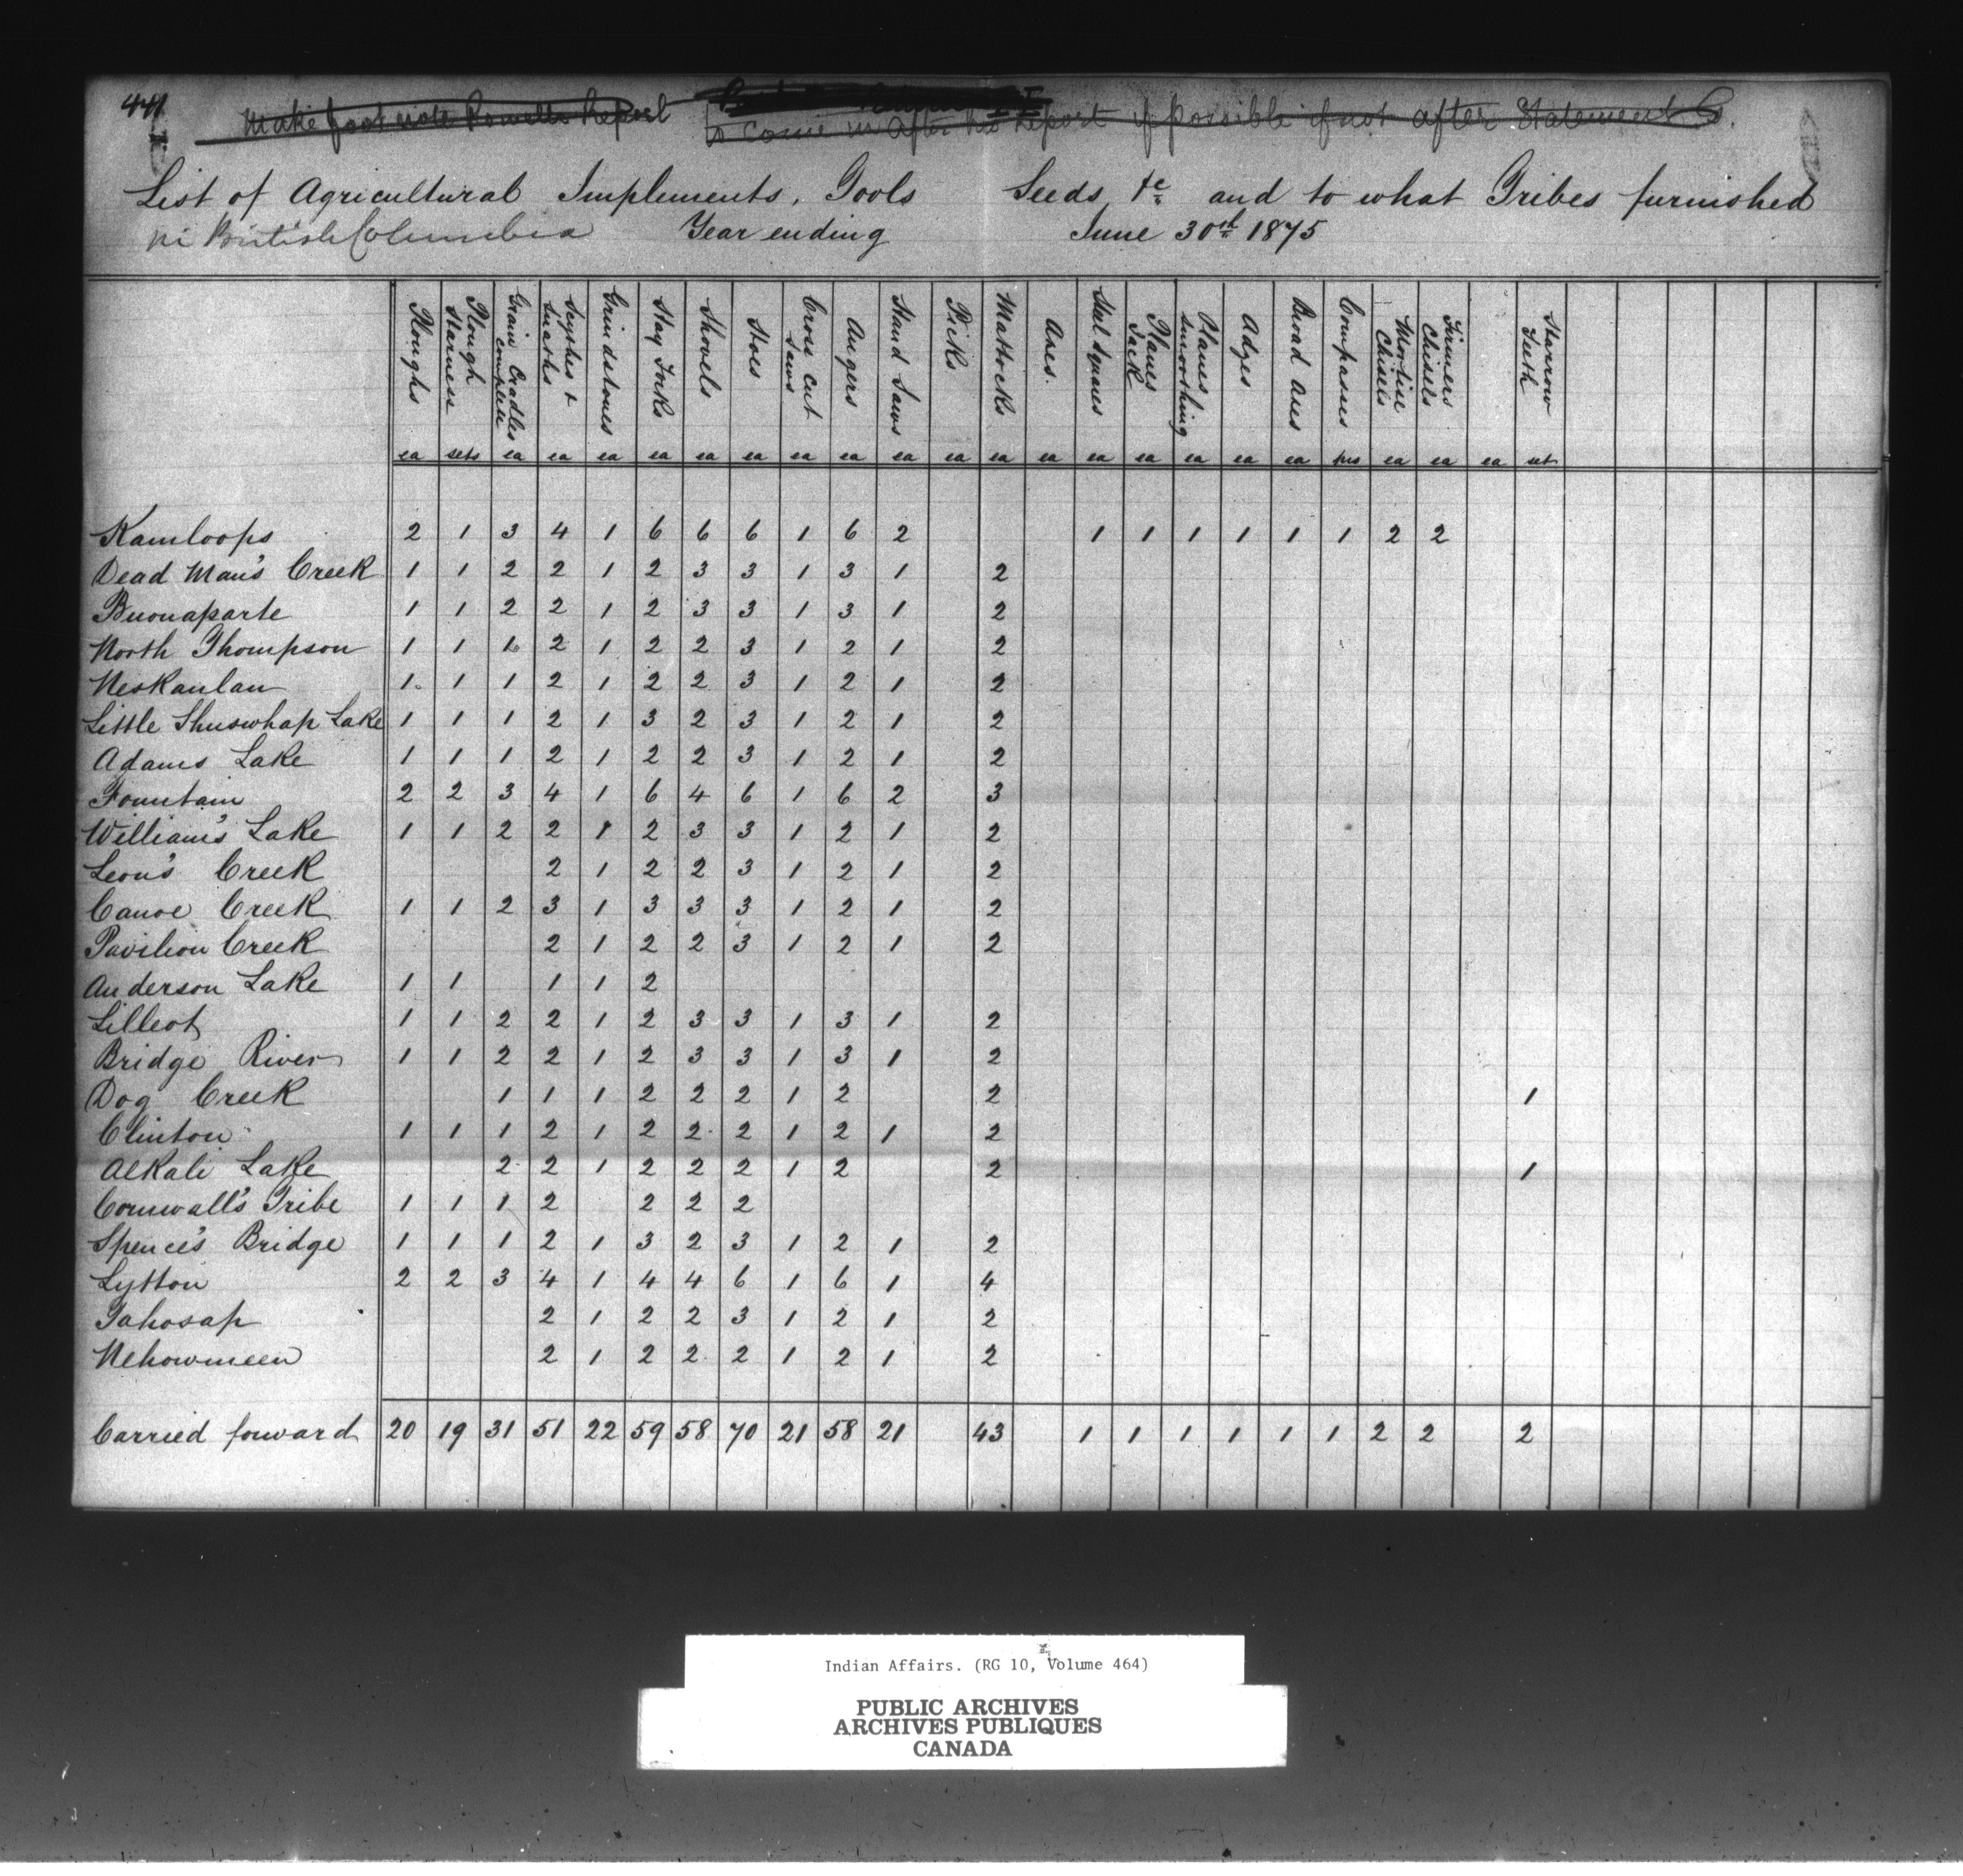 441
Make foot note Powells Report
to come in after his Report if possible if not after Statement C.
List of Agricultural Implements, Tools Seeds &c and to what Tribes furnished
in British Columbia Year ending June 30th 1875
Ploughs Plough Harness Grain Cradles complete Scythes & Snaths Grindstones Hay Forks Shovels Hoes Cross cut Saws Augers Hand Saws Picks Mattocks Axes. Steel Squares Planes Jack Planes Smoothing Adzes Broad Axes Compasses Mortise Chisels Firmers Chisels Harrow Teeth
ea sets ea ea ea ea ea ea ea ea ea ea ea ea ea ea ea ea ea prs ea ea ea set
Kamloops 2 1 3 4 1 6 6 6 1 6 2 1 1 1 1 1 1 2 2
Dead Man's Creek 1 1 2 2 1 2 3 3 1 3 1 2
Buonaparte 1 1 2 2 1 2 3 3 1 3 1 2
North Thompson 1 1 1 2 1 2 2 3 1 2 1 2
Neskanlan 1 1 1 2 1 2 2 3 1 2 1 2
Little Shuswhap Lake 1 1 1 2 1 3 2 3 1 2 1 2
Adams Lake 1 1 1 2 1 2 2 3 1 2 1 2
Fountain 2 2 3 4 1 6 4 6 1 6 2 3
William's Lake 1 1 2 2 1 2 3 3 1 2 1 2
Leon's Creek 2 1 2 2 3 1 2 1 2
Canoe Creek 1 1 2 3 1 3 3 3 1 2 1 2
Pavilion Creek 2 1 2 2 3 1 2 1 2
Anderson Lake 1 1 1 1 2
Lilleot 1 1 2 2 1 2 3 3 1 3 1 2
Bridge River 1 1 2 2 1 2 3 3 1 3 1 2
Dog Creek 1 1 1 2 2 2 1 2 2 1
Clinton 1 1 1 2 1 2 2 2 1 2 1 2
Alkali Lake 2 2 1 2 2 2 1 2 2 1
Cornwall's Tribe 1 1 1 2 2 2 2
Spence's Bridge 1 1 1 2 1 3 2 3 1 2 1 2
Lytton 2 2 3 4 1 4 4 6 1 6 1 4
Tahosap 2 1 2 2 3 1 2 1 2
Nehowmeen 2 1 2 2 2 1 2 1 2
Carried forward 20 19 31 51 22 59 58 70 21 58 21 43 1 1 1 1 1 1 2 2 2
Indian Affairs. (RG 10, Volume 464)
PUBLIC ARCHIVES
ARCHIVES PUBLIQUES
CANADA